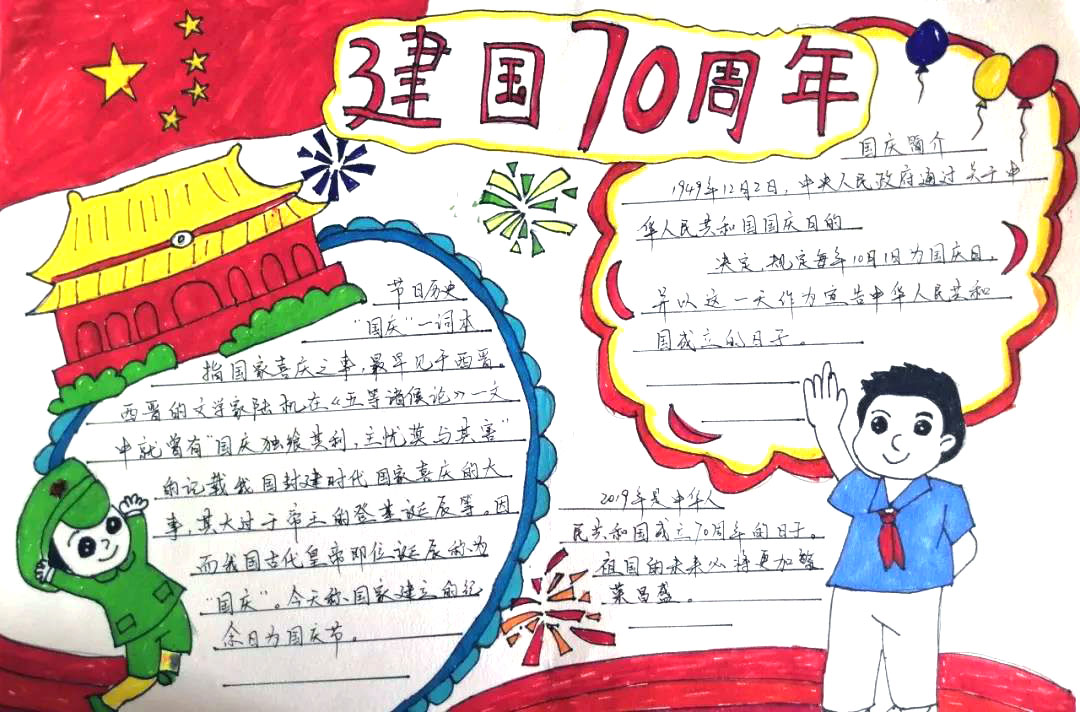 建国70周年
国庆简介
1949年12月2日，中央人民政府通过关于中
华人民共和国国庆日的
决定，规定每年10月1日为国庆日，
并以这一天作为宣告中华人民共和
国成立的日子。
节日历史
"国庆"一词本
指国家喜庆之事，最早见于西晋。
西晋的文学家陆机在《五等诸侯论》一文
中就曾有"国庆独飨其利，主忧莫与其害"
的记载我国封建时代国家喜庆的大
事，莫大过于帝王的登基诞辰等。因
而我国古代皇帝即位诞辰称为
"国庆"。今天称国家建立的纪
念日为国庆节。
2019年是中华人
民共和国成立70周年的日子。
祖国的未来必将更加繁
荣昌盛。